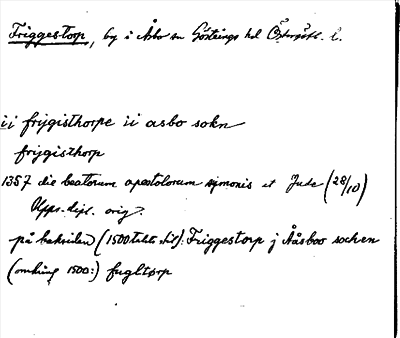 Friggestorp, by i Åsbo sn Göstrings hd Östergötl. l.
ii frijgisthorpe ii asbo sokn
frijgisthorp
1357 die beatorum apostolorum symonis et Jude (28/10)
Upps. dipl. orig.
på baksidan (1500talets stil): Friggestorp j Ååsboo sochen
(omkring 1500:) fugltorp